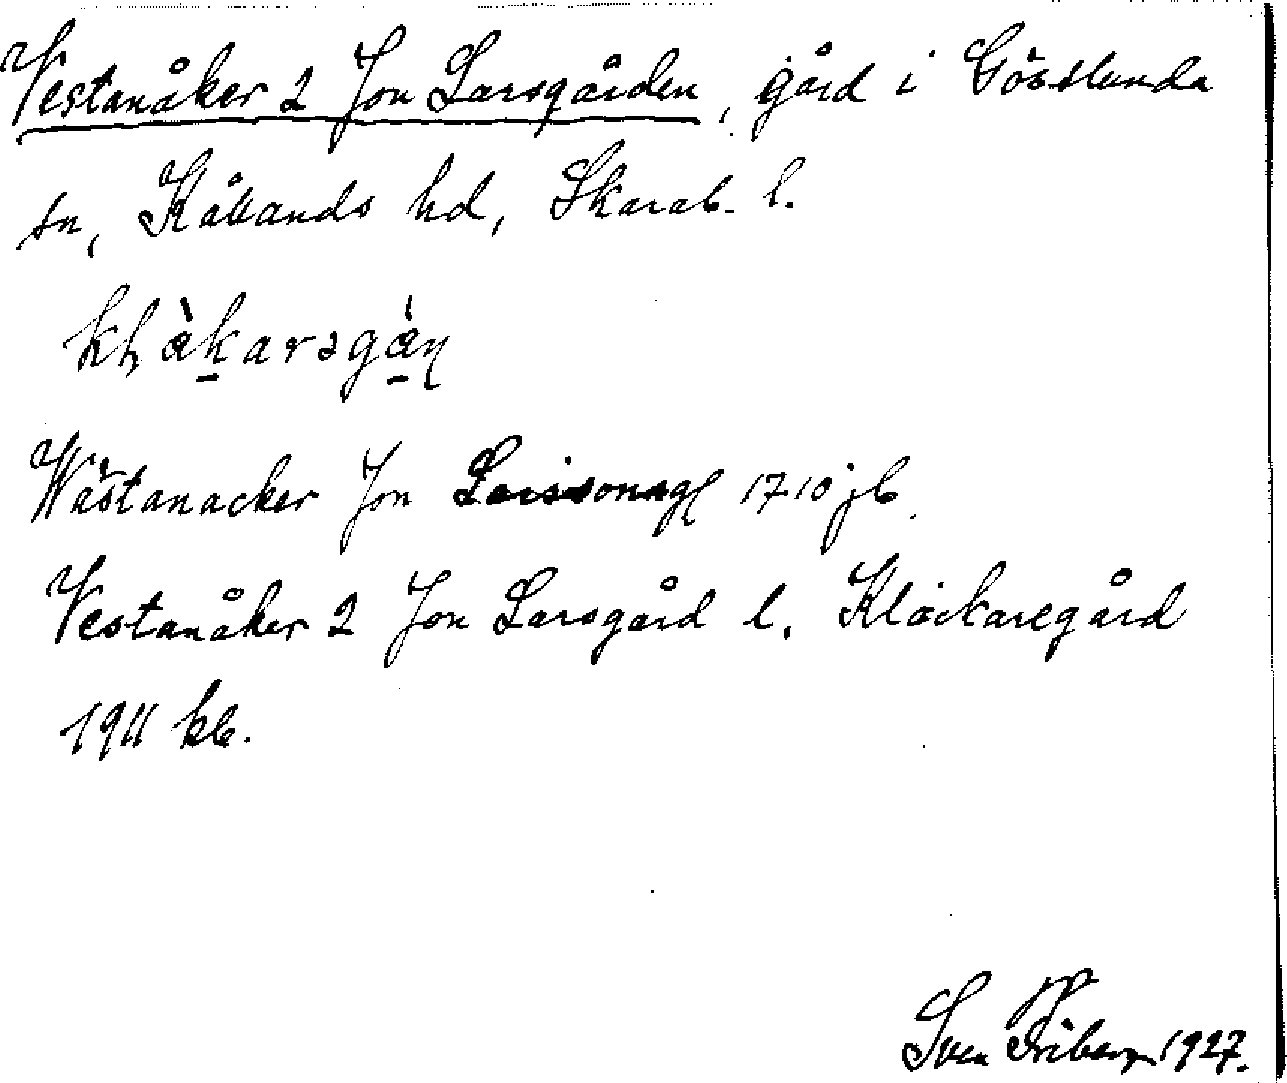 Vestanåker 2 Jon Larsgården, gård i Gösslunda
sn, Kållands hd, Skarab. l.
Wästanacker Jon Larssonsg 1710 jb.
Vestanåker 2 Jon Larsgård l. Klockaregård
1911 kb.
Sven Friberg 1927.